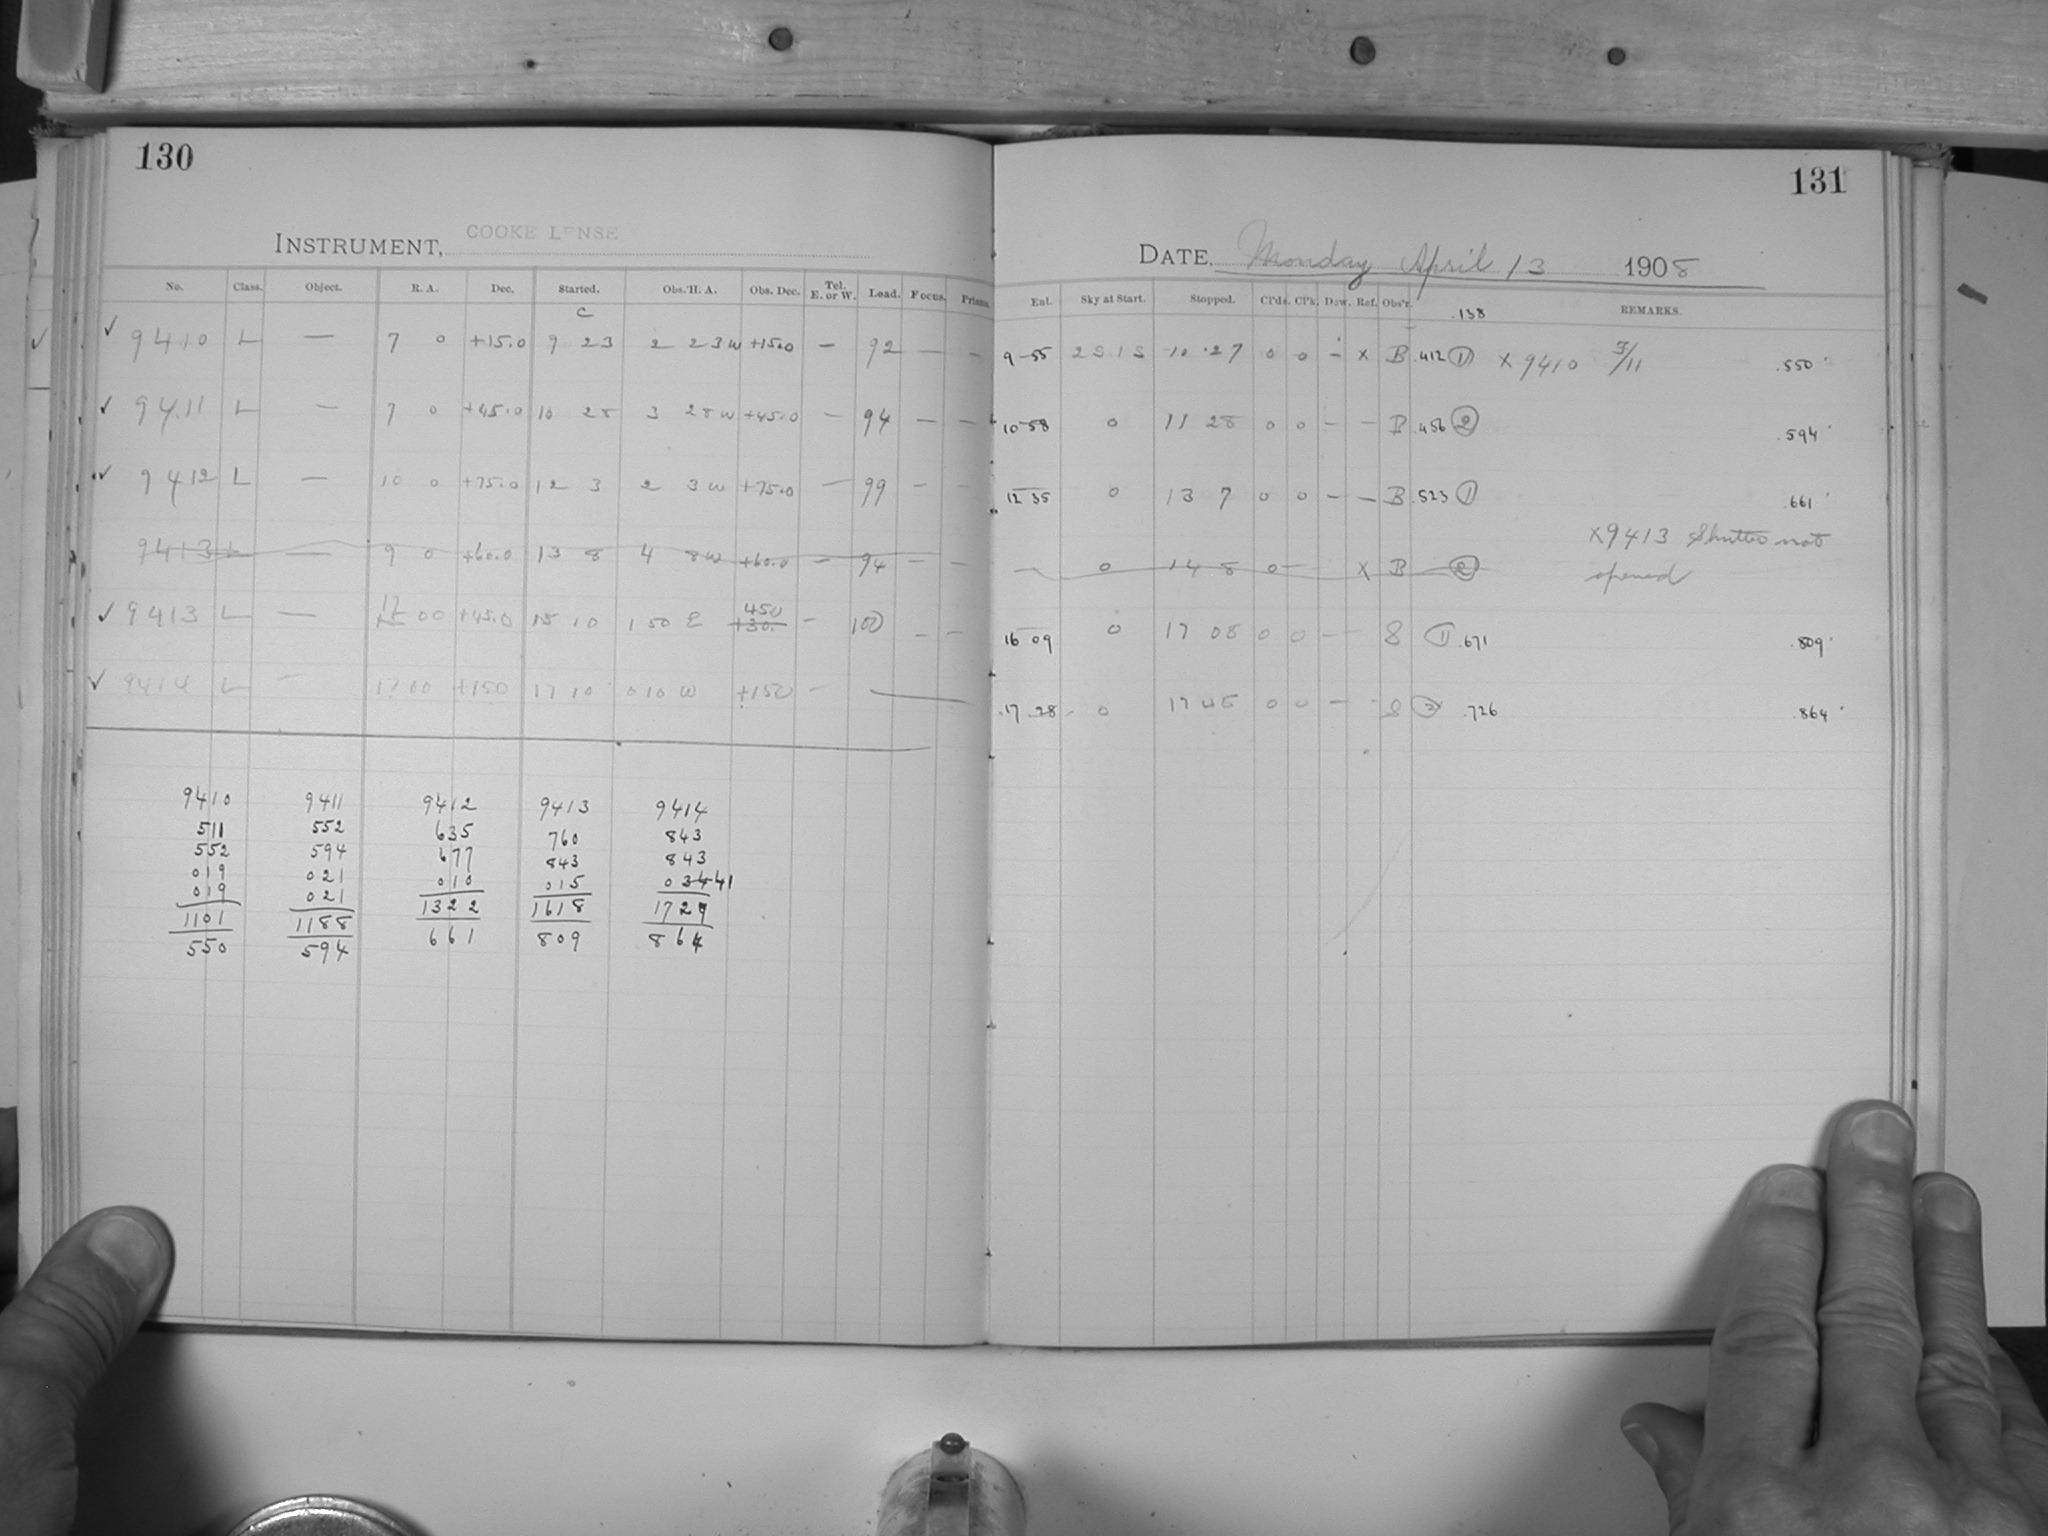 130
INSTRUMENT, COOKE LENSE
No. Class. Object. R. A. Dec. Started. Obs. H. A. Obs. Dec. Tel. E. or W. Load. Focus. Prisms.
C
✓ 9410 L — 7 0 +15.0 9 23 2 23 W +15.0 — 92 — —
✓ 9411 L — 7 0 +45.0 10 28 3 28 W +45.0 — 94 — —
✓ 9412 L — 10 0 +75.0 12 3 2 3 W +75.0 — 99 — —
9413 L — 9 0 +60.0 13 8 4 8 W +60.0 — 94 — —
✓ 9413 L — 17 00 +45.0 15 10 1 50 E 450 +30. — 100 — —
✓ 9414 L — 17 00 +150 17 10 0 10 W +150 —
9410 9411 9412 9413 9414
511 552 635 760 843
552 594 677 843 843
019 021 010 015 03441
019 021 1322 1618 1729
1101 1188 661 809 864
550 594
131
DATE, Monday April 13 1908
Ent. Sky at Start. Stopped. Cl'ds. Cl'k. Dew. Ref. Obs'r. .138 REMARKS.
9 55 2S1S 10 27 0 0 - x B .412 ① x 9410 3/11 .550
10 58 0 11 28 0 0 — — B .456 ② .594
12 35 0 13 7 0 0 — — B .523 ① .661
x9413 Shutter not
— 0 14 8 0 — X B ② opened
16 09 0 17 08 0 0 — — S ① .671 .809
17 28 0 17 45 0 0 — S ② .726 .864